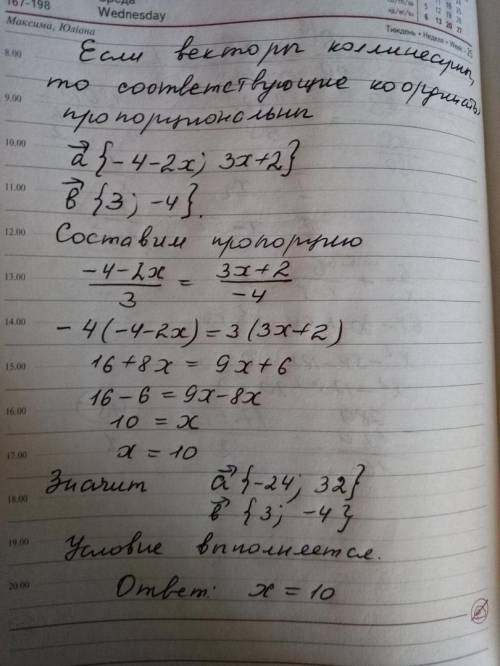 167-198
Среда
Wednesday
Максима, Юліана
Тиждень • Неделя • Week - 25
8.00
Если векторы коллинеарны,
то соответствующие координаты
9.00
пропорциональны
10.00
a⃗ {-4-2x; 3x+2}
11.00
в⃗ {3; -4}.
12.00
Составим пропорцию
13.00
(-4-2x)/3 = (3x+2)/(-4)
14.00
-4(-4-2x)=3(3x+2)
15.00
16+8x = 9x+6
16-6 = 9x-8x
16.00
10 = x
17.00
x = 10
Значит a⃗ {-24; 32}
18.00
в⃗ {3; -4}
19.00
Условие выполняется.
20.00
Ответ: x = 10